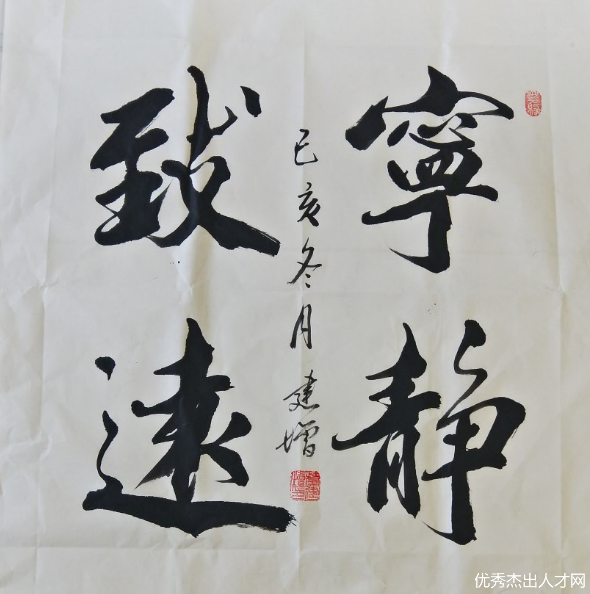 寧靜
致遠
己亥冬月 建增
优秀杰出人才网